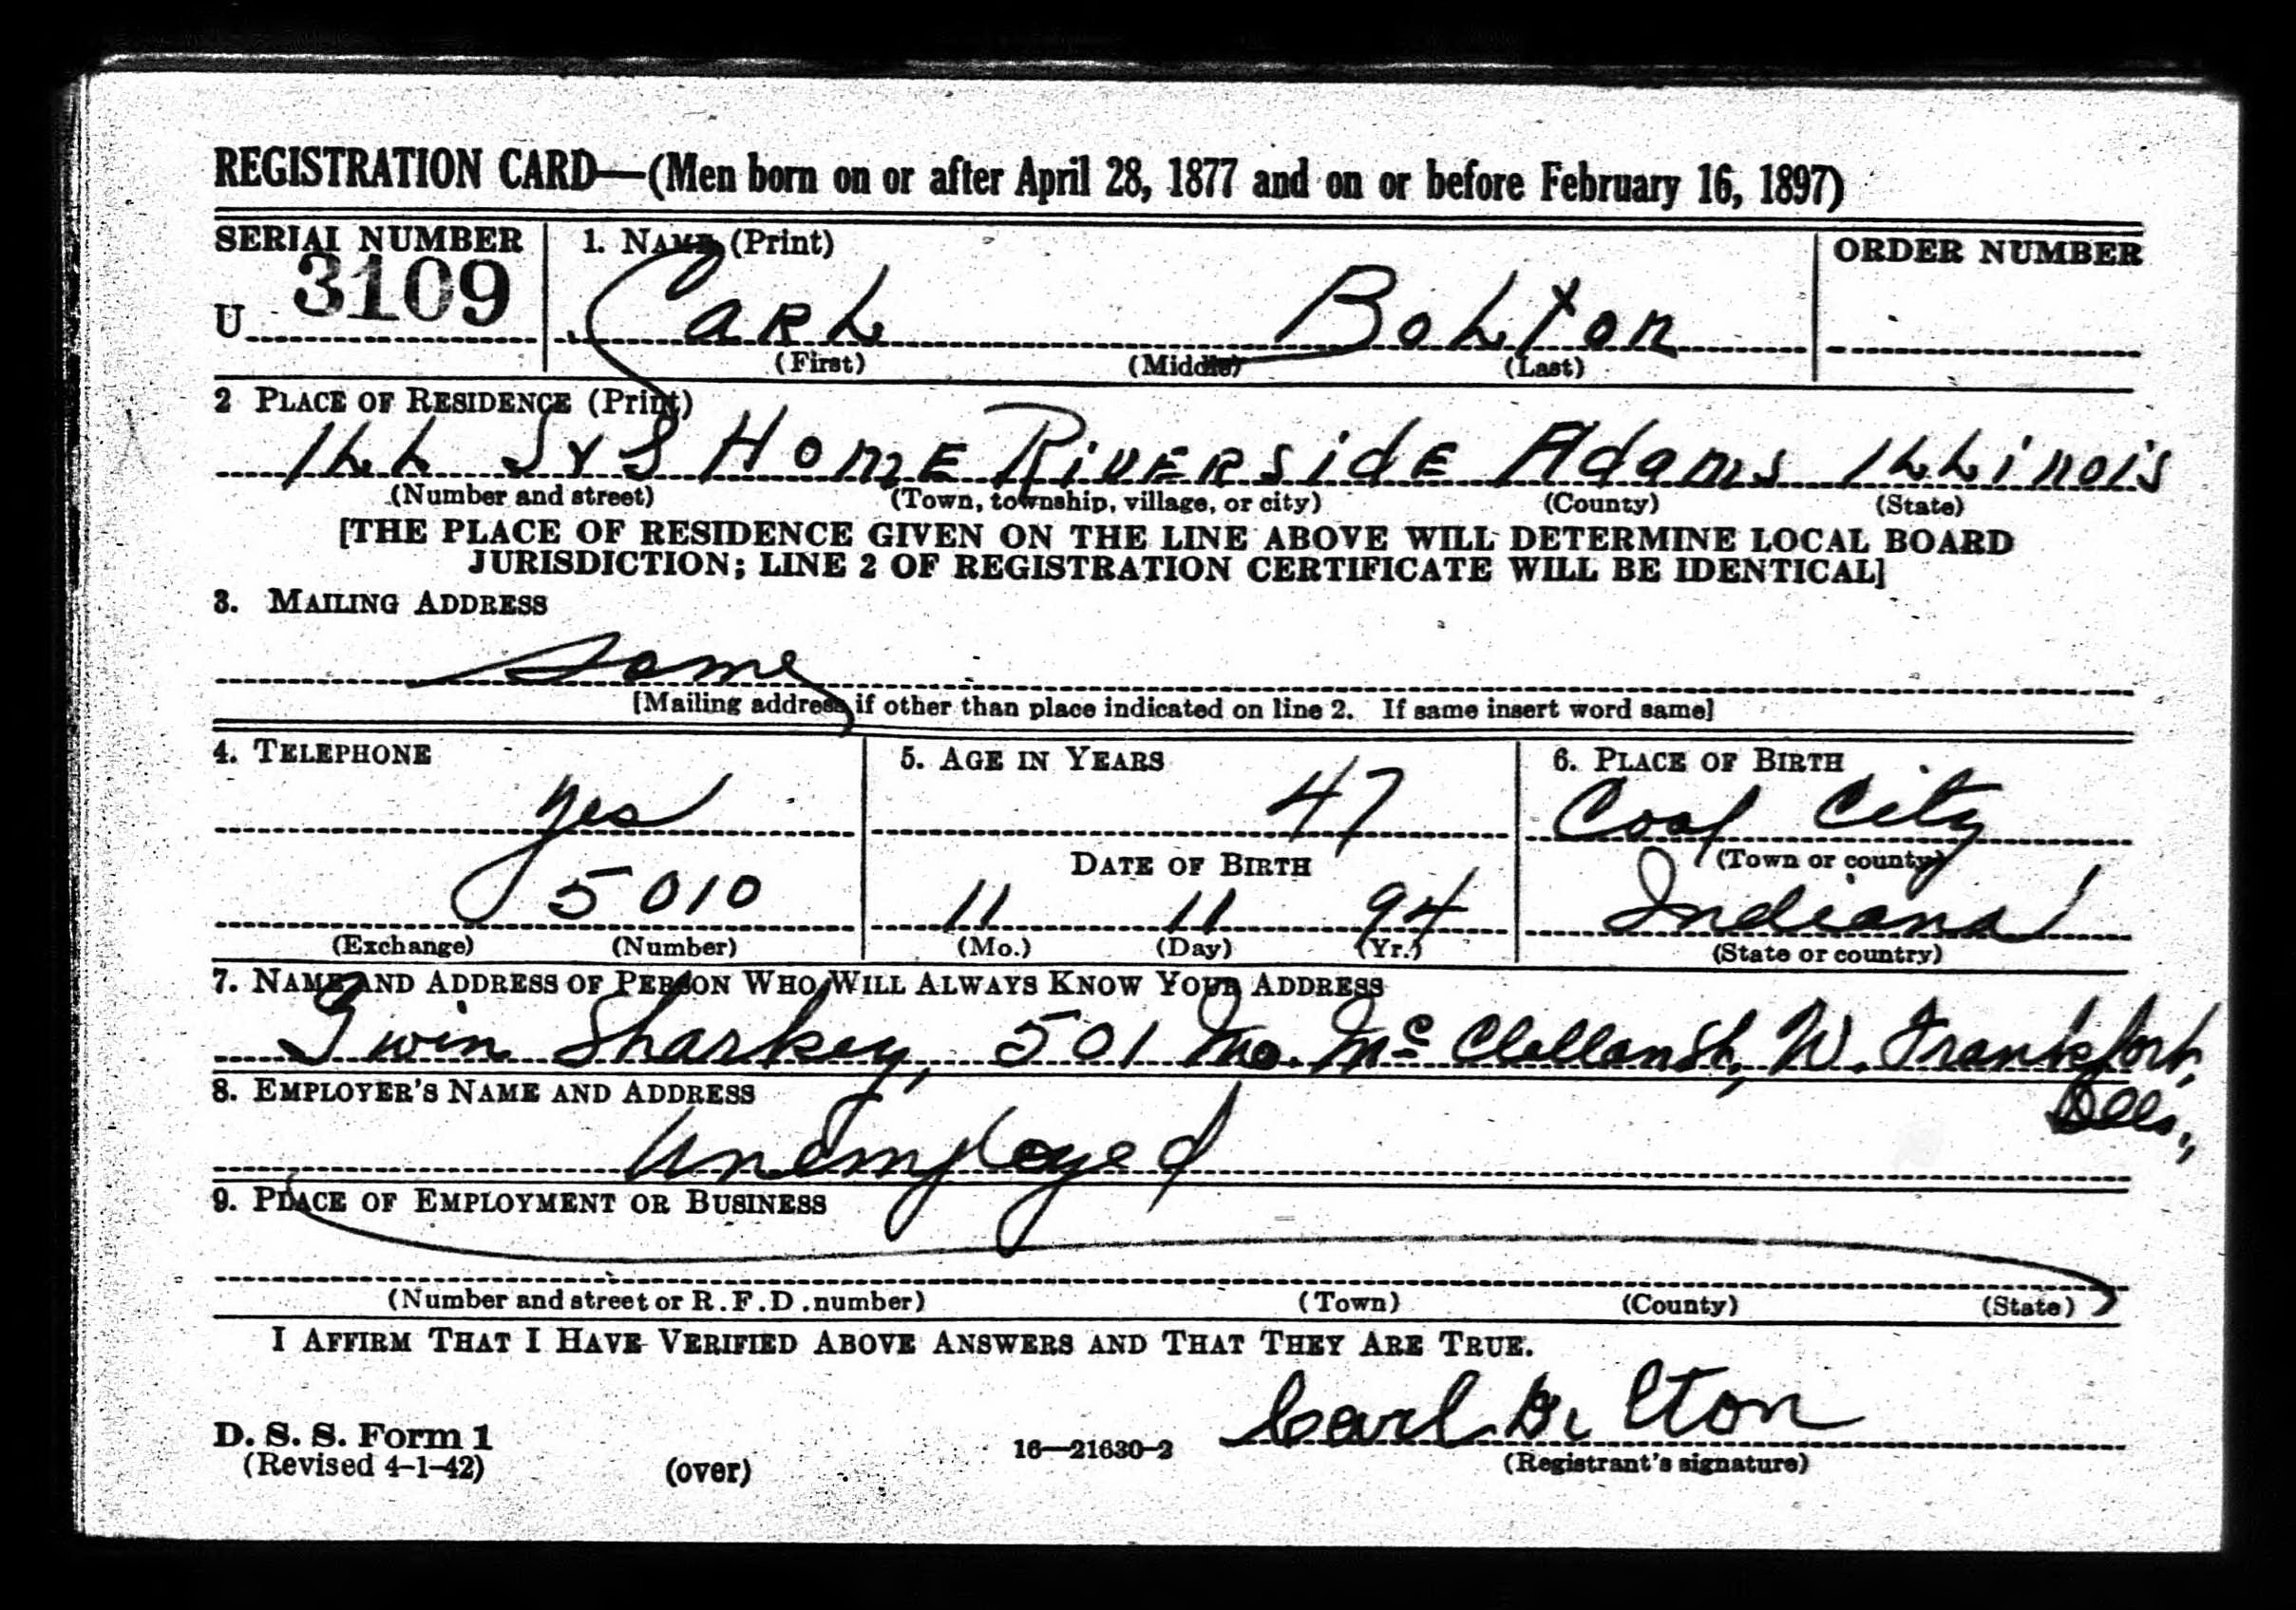 REGISTRATION CARD—(Men born on or after April 28, 1877 and on or before February 16, 1897)
SERIAL NUMBER 1. NAME (Print) ORDER NUMBER
U 3109 Carl Bolton
(First) (Middle) (Last)
2 PLACE OF RESIDENCE (Print)
Ill S & S Home Riverside Adams Illinois
(Number and street) (Town, township, village, or city) (County) (State)
[THE PLACE OF RESIDENCE GIVEN ON THE LINE ABOVE WILL DETERMINE LOCAL BOARD
JURISDICTION; LINE 2 OF REGISTRATION CERTIFICATE WILL BE IDENTICAL]
3. MAILING ADDRESS
Same
[Mailing address if other than place indicated on line 2. If same insert word same]
4. TELEPHONE 5. AGE IN YEARS 6. PLACE OF BIRTH
yes 47 Coal City
DATE OF BIRTH (Town or county)
5010 11 11 94 Indiana
(Exchange) (Number) (Mo.) (Day) (Yr.) (State or country)
7. NAME AND ADDRESS OF PERSON WHO WILL ALWAYS KNOW YOUR ADDRESS
Sharkey, 501 No. McClellan St., W. Frankfort,
Ills.,
8. EMPLOYER'S NAME AND ADDRESS
Unemployed
9. PLACE OF EMPLOYMENT OR BUSINESS
(Number and street or R.F.D. number) (Town) (County) (State)
I AFFIRM THAT I HAVE VERIFIED ABOVE ANSWERS AND THAT THEY ARE TRUE.
Carl Bolton
D. S. S. Form 1
(Revised 4-1-42) (over) 16—21630-2 (Registrant's signature)